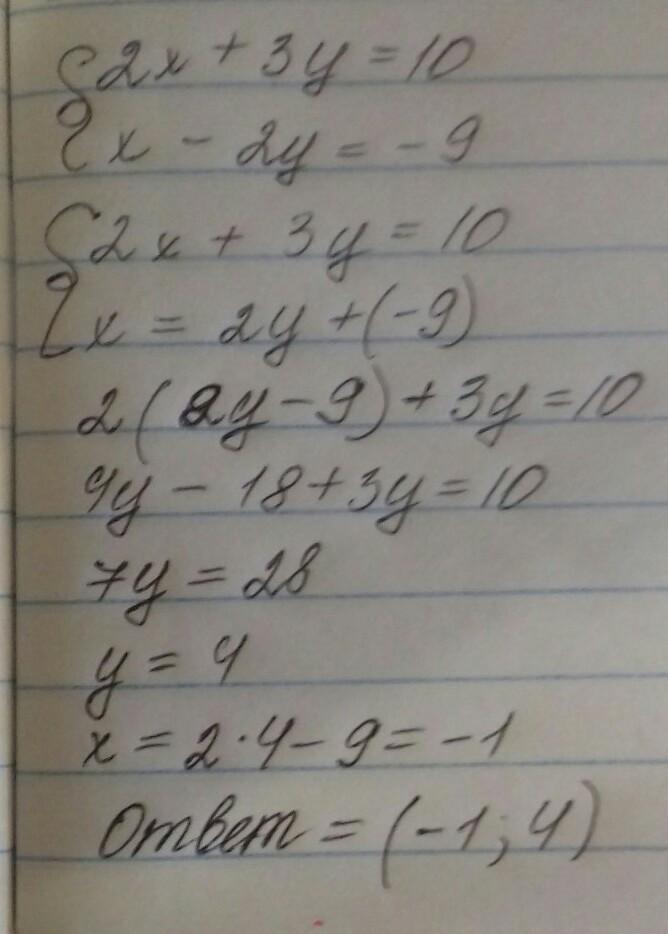 {2x + 3y = 10
{x - 2y = -9
{2x + 3y = 10
{x = 2y + (-9)
2(2y - 9) + 3y = 10
4y - 18 + 3y = 10
7y = 28
y = 4
x = 2·4 - 9 = -1
Ответ = (-1; 4)